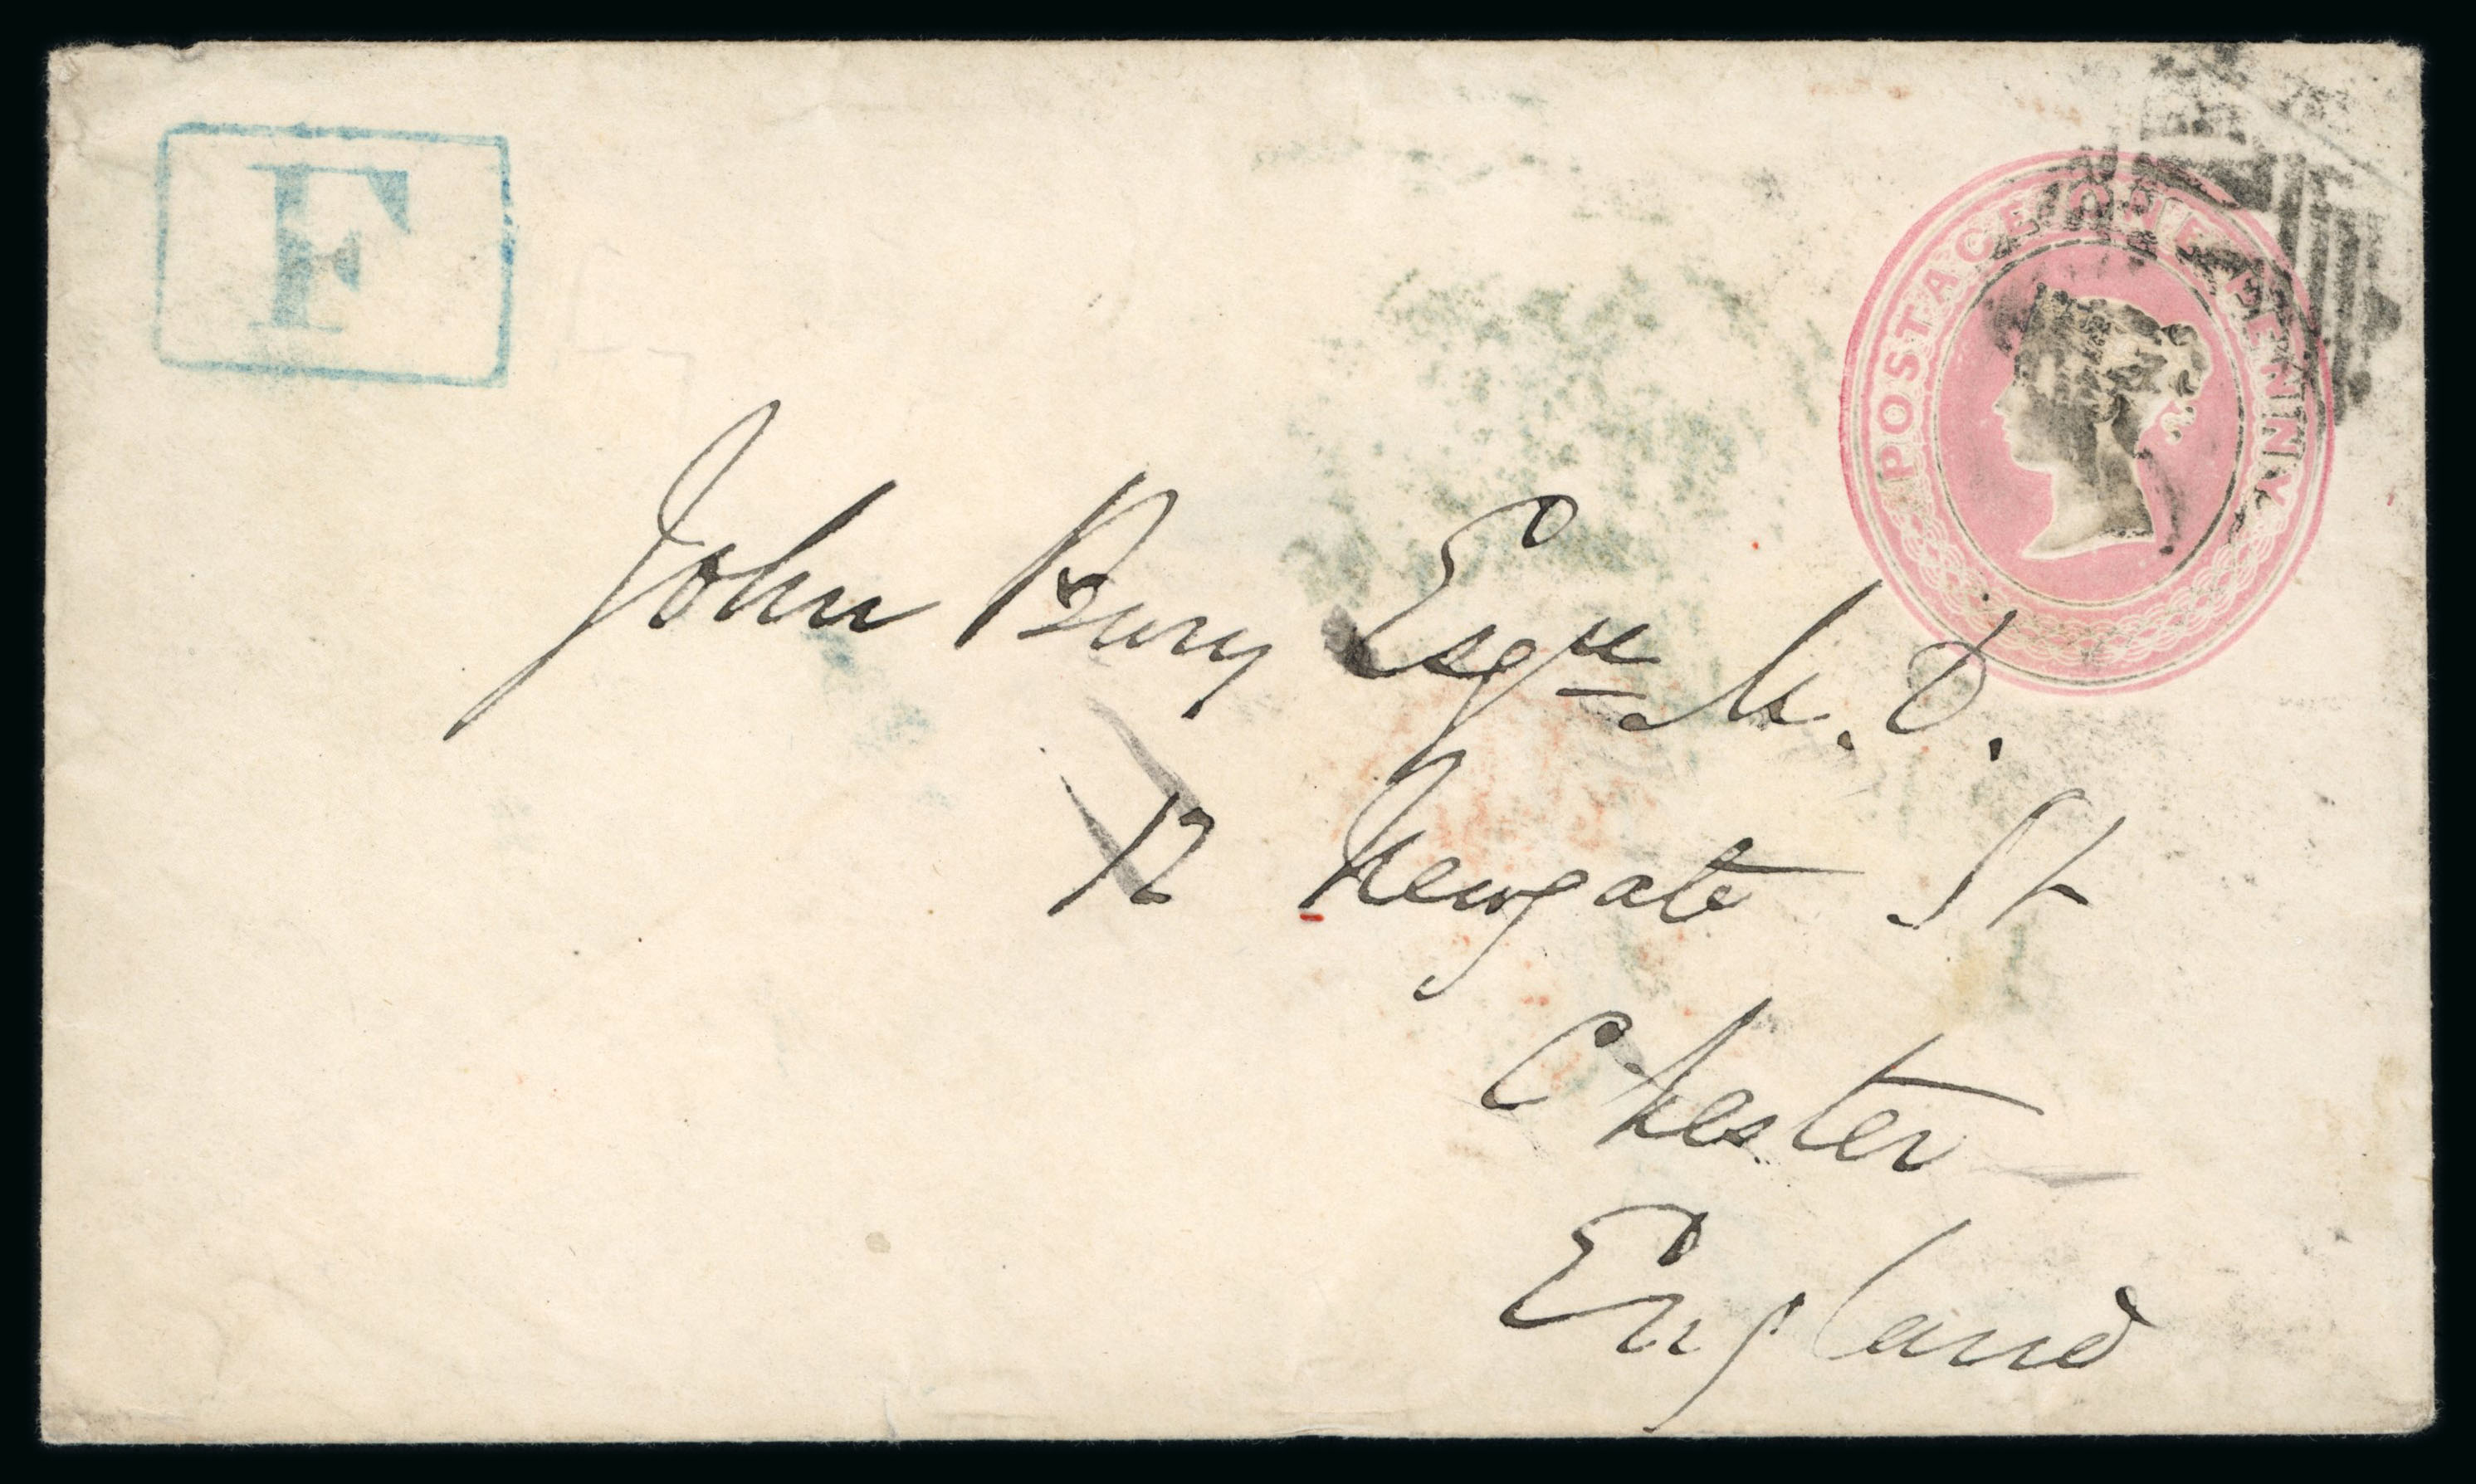 F
POSTAGE ONE PENNY
John Bury Esqre M.D.
12 Newgate St
Chester
England